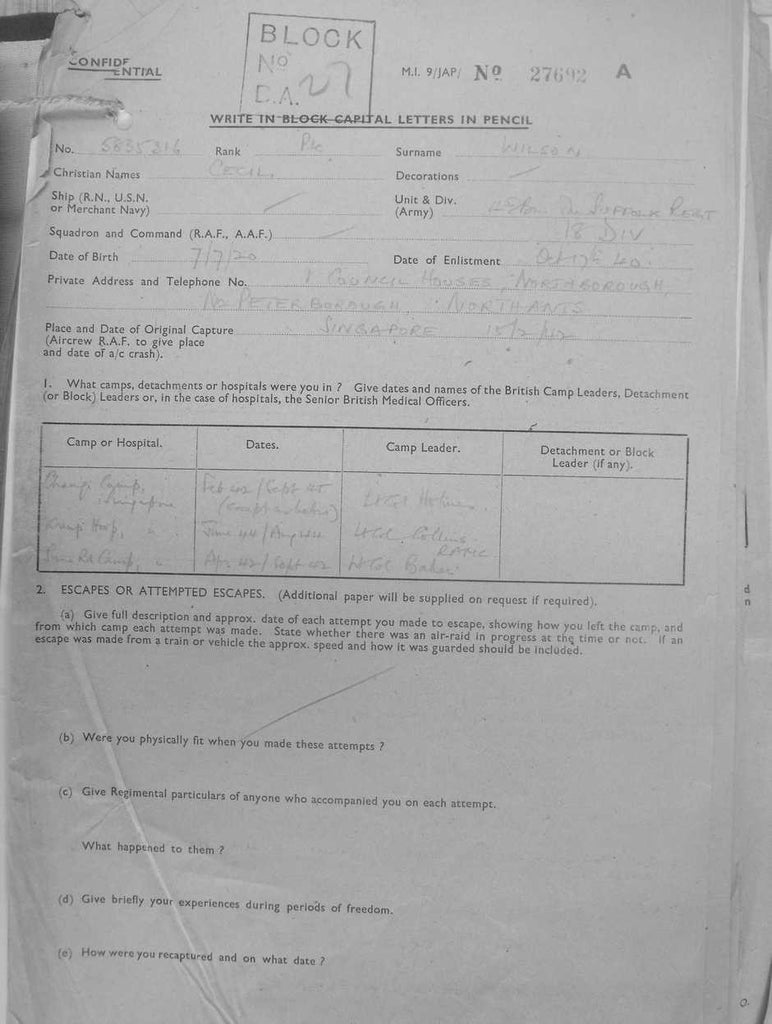 CONFIDENTIAL
BLOCK
No
D.A. 27
M.I. 9/JAP/ No 27692 A
WRITE IN BLOCK CAPITAL LETTERS IN PENCIL
No. 5835316 Rank Pte Surname WILSON
Christian Names CECIL Decorations
Ship (R.N., U.S.N. or Merchant Navy) Unit & Div. (Army) SUFFOLK REGT
18 DIV
Squadron and Command (R.A.F., A.A.F.)
Date of Birth 7/7/20 Date of Enlistment 40
Private Address and Telephone No. 1 COUNCIL HOUSES, NORTHBOROUGH,
Nr PETERBOROUGH, NORTHANTS
Place and Date of Original Capture SINGAPORE 15/2/42
(Aircrew R.A.F. to give place
and date of a/c crash).
1. What camps, detachments or hospitals were you in ? Give dates and names of the British Camp Leaders, Detachment
(or Block) Leaders or, in the case of hospitals, the Senior British Medical Officers.
Camp or Hospital. Dates. Camp Leader. Detachment or Block Leader (if any).
Changi Camp, Singapore Feb 42/Sept 45 Lt Col Holmes
Kranji Hosp, " June 44/Aug 44 Lt Col Collins RAMC
Camp, " Apr 42/Sept 42 Lt Col
2. ESCAPES OR ATTEMPTED ESCAPES. (Additional paper will be supplied on request if required).
(a) Give full description and approx. date of each attempt you made to escape, showing how you left the camp, and
from which camp each attempt was made. State whether there was an air-raid in progress at the time or not. If an
escape was made from a train or vehicle the approx. speed and how it was guarded should be included.
(b) Were you physically fit when you made these attempts ?
(c) Give Regimental particulars of anyone who accompanied you on each attempt.
What happened to them ?
(d) Give briefly your experiences during periods of freedom.
(e) How were you recaptured and on what date ?